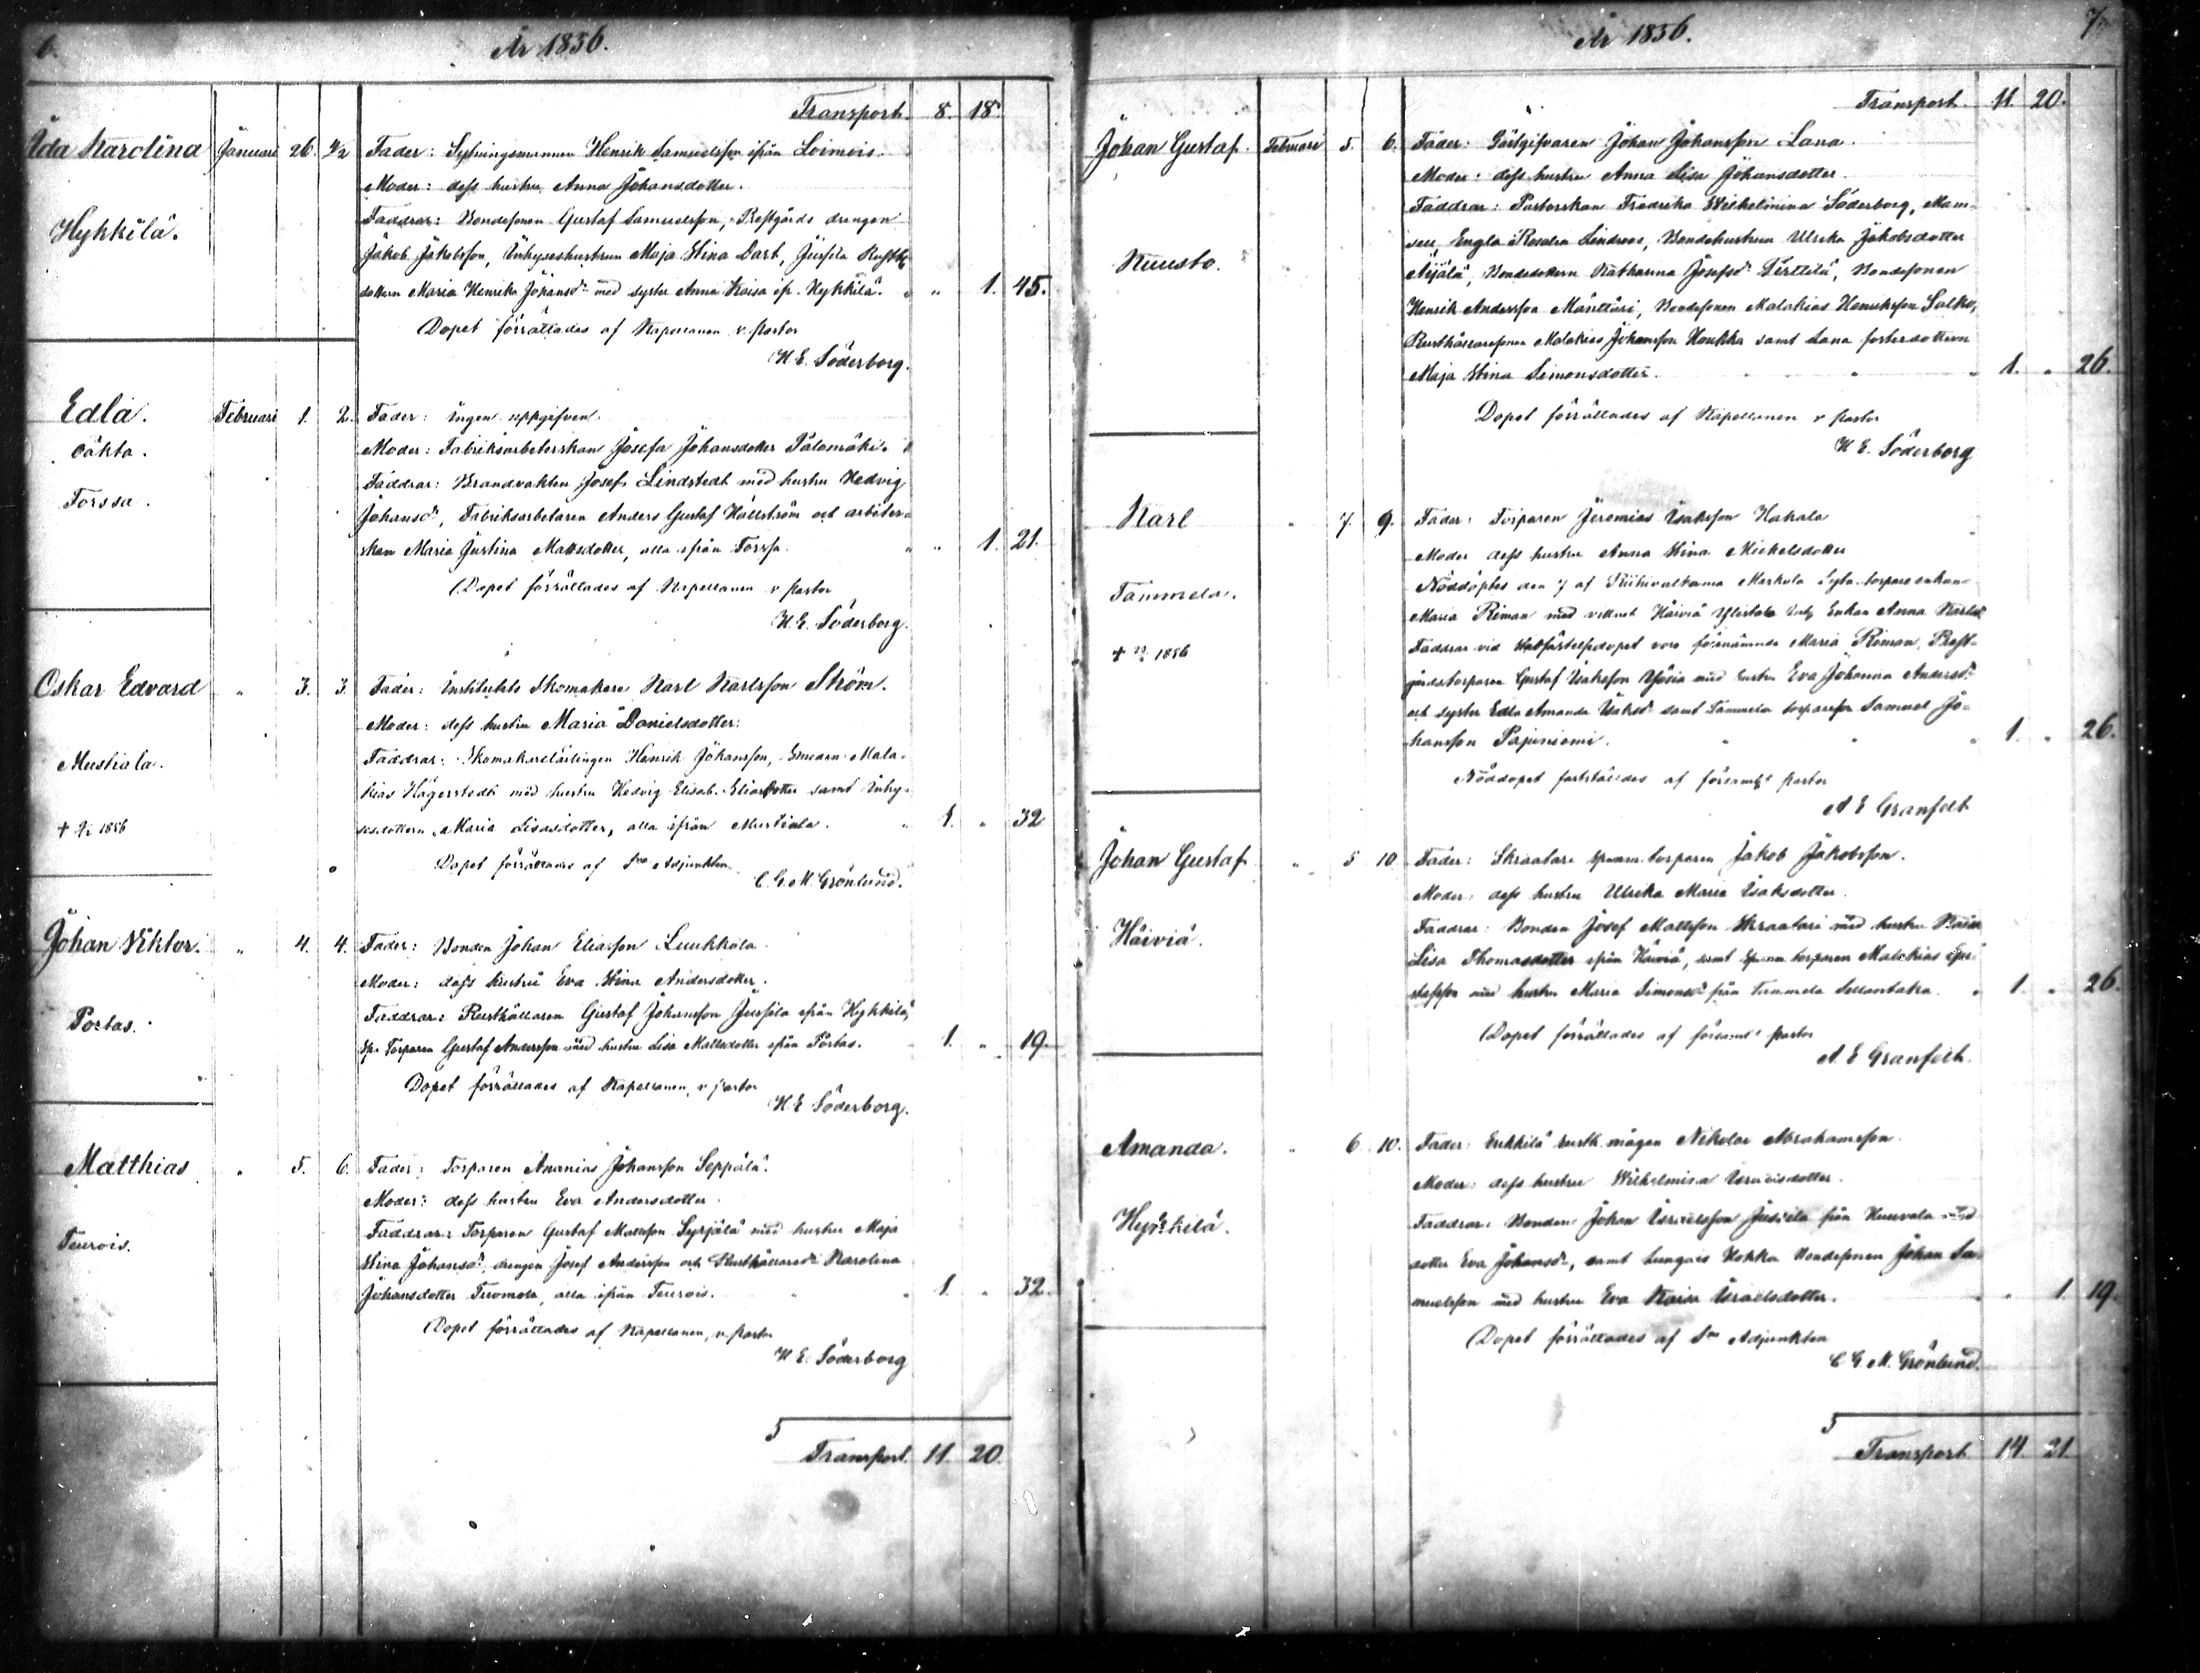 6. År 1856.
Transport. 8. 18.
Ida Karolina Januari 26. 4/2 Fader: Sytningsmannen Henrik Samuelsson ifrån Loimois.
Moder: dess hustru Anna Johansdotter.
Hykkilä. Faddrar: Bondesonen Gustaf Samuelsson, Prestgårds drengen
Jakob Jakobsson, Inhyseshustrun Maja Stina Dart, Jussila Rusth.
dottern Maria Henrika Johansd. med syster Anna Kaisa ifr. Hykkilä. " 1. 45.
Dopet förrättades af Kapellanen v. Pastor
H. E. Söderborg.
Edla. Februari 1. 2. Fader: Ingen uppgifven.
oäkta. Moder: Fabriksarbeterskan Josefa Johansdotter Palomäki.
Forssa. Faddrar: Brandvakten Josef Lindstedt med hustru Hedvig
Johansd., Fabriksarbetaren Anders Gustaf Hällström och arbeter-
skan Maria Justina Mattsdotter, alla ifrån Forssa. " 1. 21.
Dopet förrättades af Kapellanen v Pastor
H. E. Söderborg.
Oskar Edvard " 3. 3. Fader: Instituts Skomakare Karl Karlsson Ström.
Moder: dess hustru Maria Danielsdotter.
Mustiala. Faddrar: Skomakarelärlingen Henrik Johansson, Smeden Mala-
kias Hägerstedt med hustru Hedvig Elisab. Eliasdotter samt Inhy-
+ 9/2 1856 sesdottern Maria Lisasdotter, alla ifrån Mustiala. 1. " 32
Dopet förrättades af Sne Adjunkten
C. G. M. Grönlund.
Johan Viktor. " 4. 4. Fader: Bonden Johan Eliasson Luukkala.
Moder: dess hustru Eva Stina Andersdotter.
Portas. Faddrar: Rusthållaren Gustaf Johansson Jussila ifrån Hykkilä,
Sp. Torparen Gustaf Andersson med hustru Lisa Mattsdotter ifrån Portas. 1. " 19.
Dopet förrättades af Kapellanen, v Pastor
H. E. Söderborg.
Matthias " 5. 6. Fader: Torparen Ananias Johansson Seppälä.
Moder: dess hustru Eva Andersdotter.
Teurois. Faddrar: Torparen Gustaf Mattsson Syrjälä med hustru Maja
Stina Johansd. drengen Josef Andersson och Rusthållared. Karolina
Johansdotter Tuomola, alla ifrån Teurois. 1. " 32.
Dopet förrättades af Kapellanen, v. Pastor
H. E. Söderborg
Transport. 11. 20
År 1856. 7.
Transport. 11. 20.
Johan Gustaf. Februari 5. 6. Fader: Gästgifvaren Johan Johansson Lana.
Moder: dess hustru Anna Lisa Johansdotter.
Faddrar: Pastorskan Fredrika Wilhelmina Söderborg, Mam-
Kuusto. sell Engla Rosalia Lindroos, Bondehustrun Ulrika Jakobsdotter
Äijälä, Bondedottern Katharina Josefsd. Perttilä, Bondesonen
Henrik Andersson Mänttäri, Bondesonen Malakias Henriksson Salko,
Rusthållaresonen Malakias Johansson Haukka samt Lana fosterdottern
Maja Stina Simonsdotter. 1. " 26.
Dopet förrättades af Kapellanen v Pastor
H E. Söderborg
Karl " 7. 9. Fader: Torparen Jeremias Isaksson Hakala
Moder dess hustru Anna Stina Mickelsdotter
Tammela. Nöddöptes den 7 af torpareenkan
Maria Riman med vittnet Häiviä Ylistalo Inh. Enkan Anna Karlsd.
+ 1856 Faddrar vid voro förenämnde Maria Riman, Prest-
gårdstorparen Gustaf Isaksson med hustru Eva Johanna Andersd.
och syster Edla Amanda Isaksd. samt Tammela torpareson Samuel Jo-
hansson Pajuniemi. 1. " 26.
Nöddopet fastställdes af församl. Pastor
A E Granfelt
Johan Gustaf " 5 10 Fader: Skraatari torparen Jakob Jakobsson.
Moder: dess hustru Ulrika Maria Isaksdotter.
Häiviä. Faddrar: Bonden Josef Mattsson Skraatari med hustru
Lisa Thomasdotter ifrån Häiviä, samt torparen Malakias Gu-
stafsson med hustru Maria Simonsd. från Tammela Sellantaka. 1. " 26.
Dopet förrättades af församl. Pastor
A. E Granfelt.
Amanda. " 6 10. Fader: Erkkilä Rusth. mågen Nikolai Abrahamsson.
Moder: dess hustru Wilhelmina Israelsdotter.
Hykkilä. Faddrar: Bonden Johan Israelsson Jussila från Kuuvala med
dotter Eva Johansd., samt Lunguis Hokka Bondesonen Johan Sa-
muelsson med hustru Eva Kaisa Israelsdotter. " 1. 19.
Dopet förrättades af Sne Adjunkten
C G M. Grönlund.
Transport 14. 21.